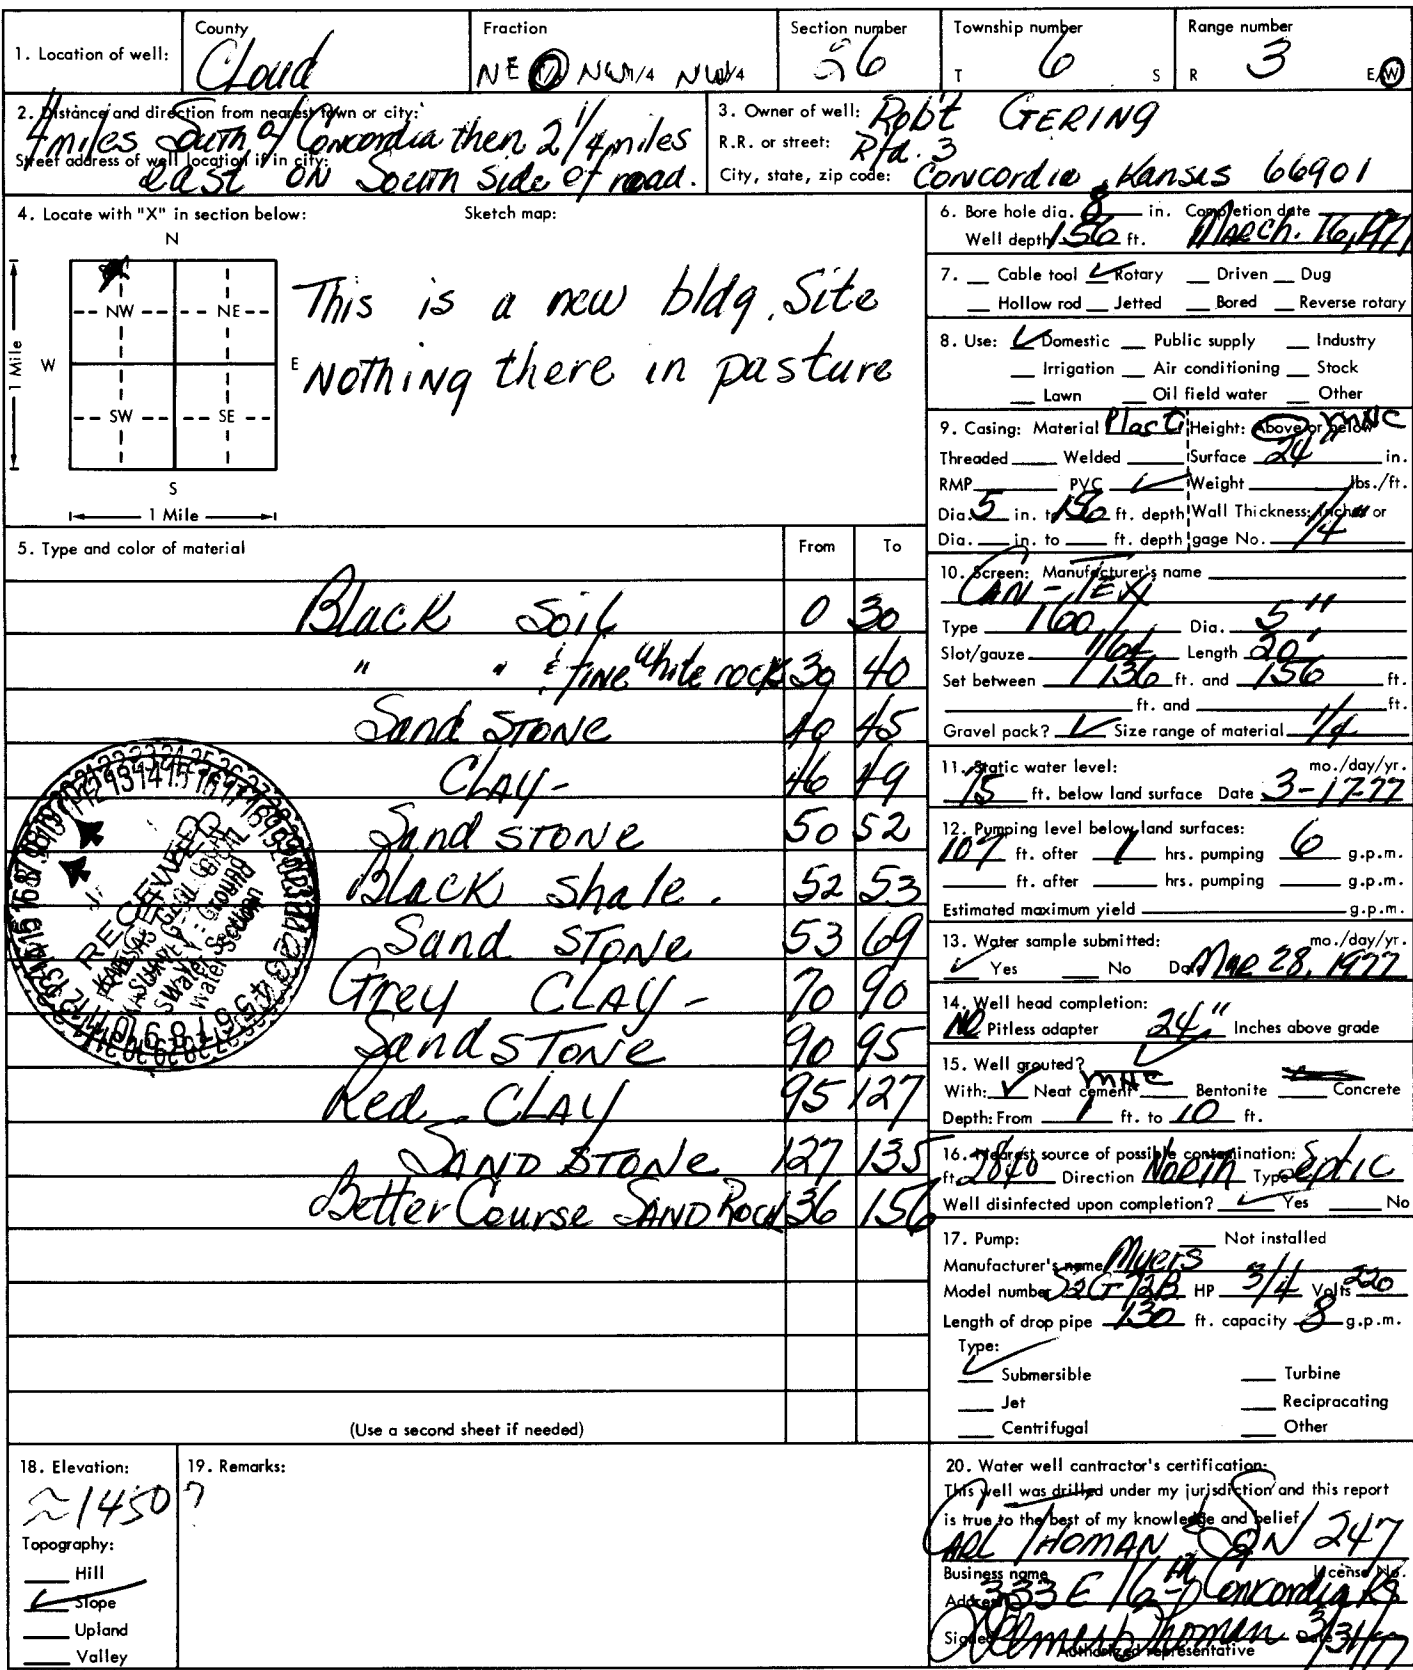 1. Location of well:
County
Cloud
Fraction
NE NW 1/4 NW 1/4
Section number
26
Township number
T 6 S
Range number
R 3 E/W
2. Distance and direction from nearest town or city:
4 miles South of Concordia then 2 1/4 miles
Street address of well location if in city:
east on South side of road.
3. Owner of well: Rob't GERING
R.R. or street: Rfd. 3
City, state, zip code: Concordia, Kansas 66901
4. Locate with "X" in section below:
Sketch map:
N
NW NE
W E
SW SE
S
1 Mile
1 Mile
This is a new bldg. Site
Nothing there in pasture
5. Type and color of material From To
Black Soil 0 30
" " & fine white rock 30 40
Sand STONE 40 45
CLAY - 46 49
Sand STONE 50 52
Black Shale. 52 53
Sand STONE 53 69
Grey CLAY - 70 90
Sand STONE 90 95
Red - CLAY 95 127
SAND STONE 127 135
Better Course SAND Rock 136 156
RECEIVED
(Use a second sheet if needed)
6. Bore hole dia. 8 in. Completion date
Well depth 156 ft. March. 16, 1977
7. Cable tool ✓ Rotary Driven Dug
Hollow rod Jetted Bored Reverse rotary
8. Use: ✓ Domestic Public supply Industry
Irrigation Air conditioning Stock
Lawn Oil field water Other
9. Casing: Material Plastic Height: Above or below
Threaded Welded Surface 24" in.
RMP PVC ✓ Weight lbs./ft.
Dia. 5 in. to 156 ft. depth Wall Thickness: inches or
Dia. in. to ft. depth gage No. 1/4"
10. Screen: Manufacturer's name
CAN-TEX
Type 160 Dia. 5"
Slot/gauze 1/64 Length 20'
Set between 136 ft. and 156 ft.
ft. and ft.
Gravel pack? ✓ Size range of material 1/4
11. Static water level: mo./day/yr.
15 ft. below land surface Date 3-17-77
12. Pumping level below land surfaces:
107 ft. after 1 hrs. pumping 6 g.p.m.
ft. after hrs. pumping g.p.m.
Estimated maximum yield g.p.m.
13. Water sample submitted: mo./day/yr.
✓ Yes No Date Mar 28, 1977
14. Well head completion:
NO Pitless adapter 24" Inches above grade
15. Well grouted? ✓
With: ✓ Neat cement Bentonite Concrete
Depth: From 1 ft. to 10 ft.
16. Nearest source of possible contamination:
ft. Direction North Type Septic
Well disinfected upon completion? ✓ Yes No
17. Pump: Not installed
Manufacturer's name Myers
Model number HP 3/4 Volts 220
Length of drop pipe 130 ft. capacity 8 g.p.m.
Type:
✓ Submersible Turbine
Jet Reciprocating
Centrifugal Other
18. Elevation:
≈1450?
Topography:
Hill
✓ Slope
Upland
Valley
19. Remarks:
20. Water well contractor's certification:
This well was drilled under my jurisdiction and this report
is true to the best of my knowledge and belief
CARL THOMAN & SON 247
Business name License No.
Address 333 E 16th Concordia KS
Signed Thoman Date 3/31/77
Authorized representative